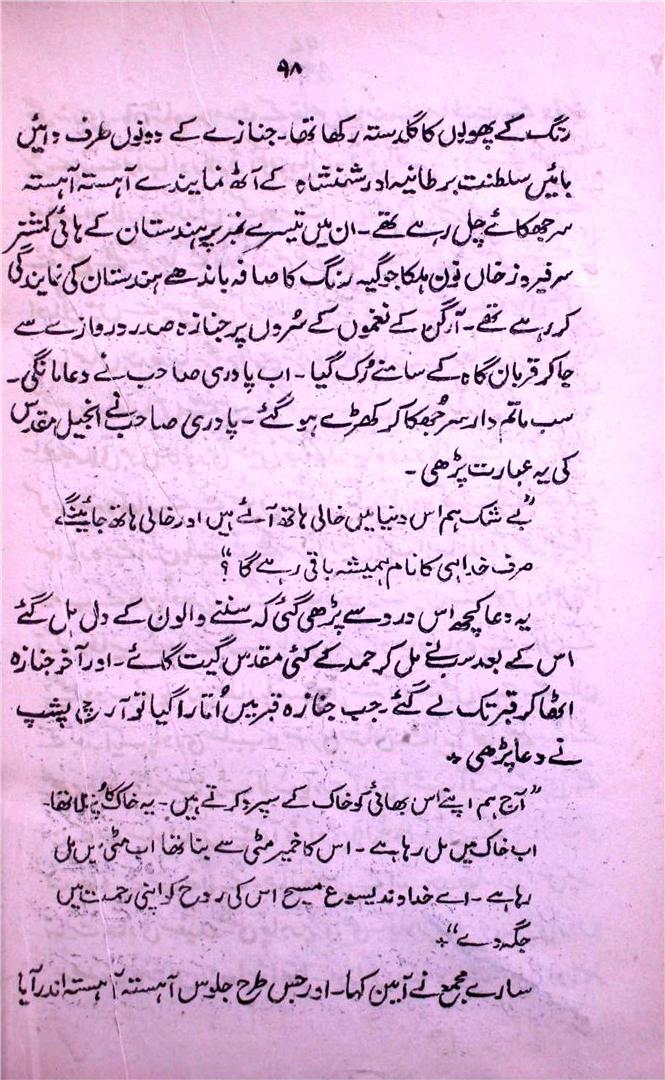 ۹۸
رنگ کے پھولوں کا گلدستہ رکھا تھا۔ جنازے کے دونوں طرف دائیں
بائیں سلطنت برطانیہ اور شہنشاہ کے آٹھ نمایندے آہستہ آہستہ
سر جھکائے چل رہے تھے۔ ان میں تیسرے نمبر پر ہندستان کے ہائی کمشنر
سر فیروز خاں نون ہلکا جوگیہ رنگ کا صافہ باندھے ہندستان کی نمایندگی
کر رہے تھے۔ آرگن کے نغموں کے سُروں پر جنازہ صدر دروازے سے
جا کر قربان گاہ کے سامنے رُک گیا۔ اب پادری صاحب نے دعا مانگی۔
سب ماتم دار سر جُھکا کر کھڑے ہو گئے۔ پادری صاحب نے انجیل مقدس
کی یہ عبارت پڑھی۔
"بے شک ہم اس دنیا میں خالی ہاتھ آئے ہیں اور خالی ہاتھ جائینگے
صرف خدا ہی کا نام ہمیشہ باقی رہے گا ؟"
یہ دعا کچھ اس درد سے پڑھی گئی کہ سننے والوں کے دل ہل گئے
اس کے بعد سب نے مل کر حمد کے کئی مقدس گیت گائے۔ اور آخر جنازہ
اٹھا کر قبر تک لے گئے۔ جب جنازہ قبر میں اُتارا گیا تو آرچ بشپ
نے دعا پڑھی ٭
"آج ہم اپنے اس بھائی کو خاک کے سپرد کرتے ہیں۔ یہ خاک کا پُتلا تھا۔
اب خاک میں مل رہا ہے۔ اس کا خمیر مٹی سے بنا تھا اب مٹی میں مل
رہا ہے۔ اے خداوند یسوع مسیح اس کی روح کو اپنی رحمت میں
جگہ دے"٭
سارے مجمع نے آمین کہا۔ اور جس طرح جلوس آہستہ آہستہ اندر آیا